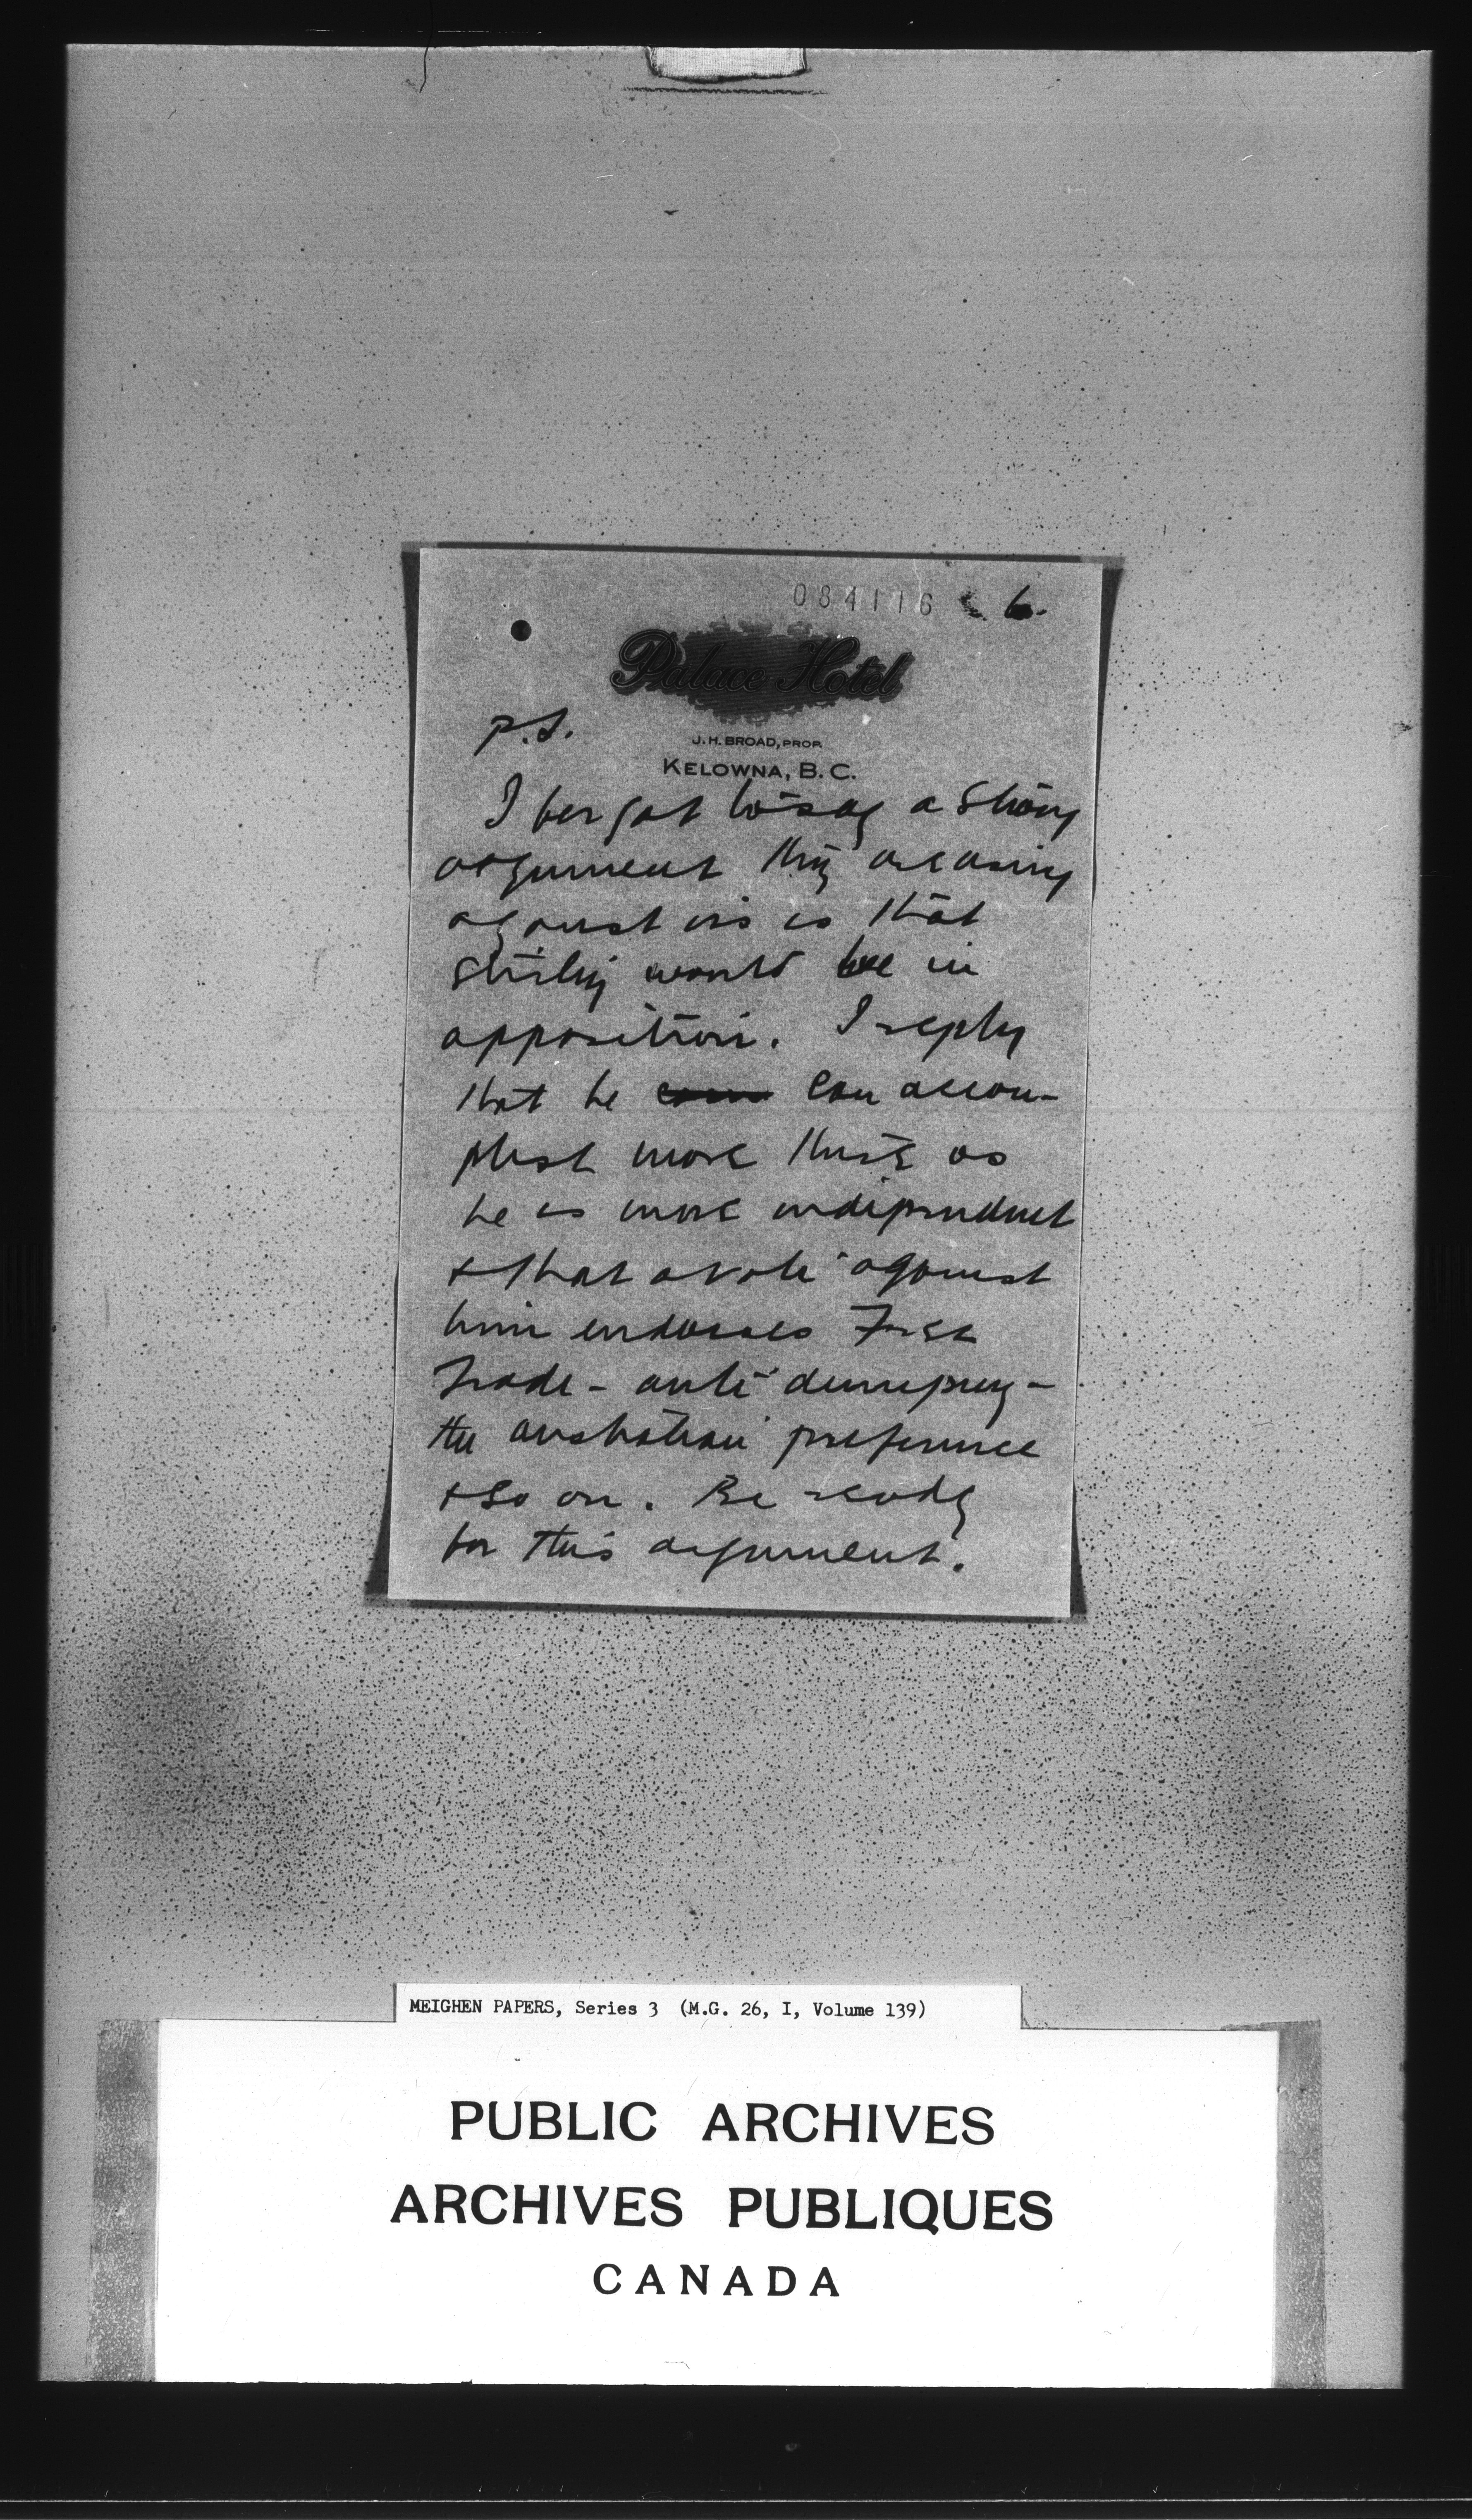 084116 6.
Palace Hotel
J. H. BROAD, PROP.
KELOWNA, B. C.
P.S.
I forgot to say a strong
argument they are using
against us is that
Stirling would be in
opposition. I reply
that he can accom-
plish more there as
he is more independent
& that a vote against
him endorses Free
Trade - anti dumping -
the Australian preference
& so on. Be ready
for this argument.
MEIGHEN PAPERS, Series 3 (M.G. 26, I, Volume 139)
PUBLIC ARCHIVES
ARCHIVES PUBLIQUES
CANADA